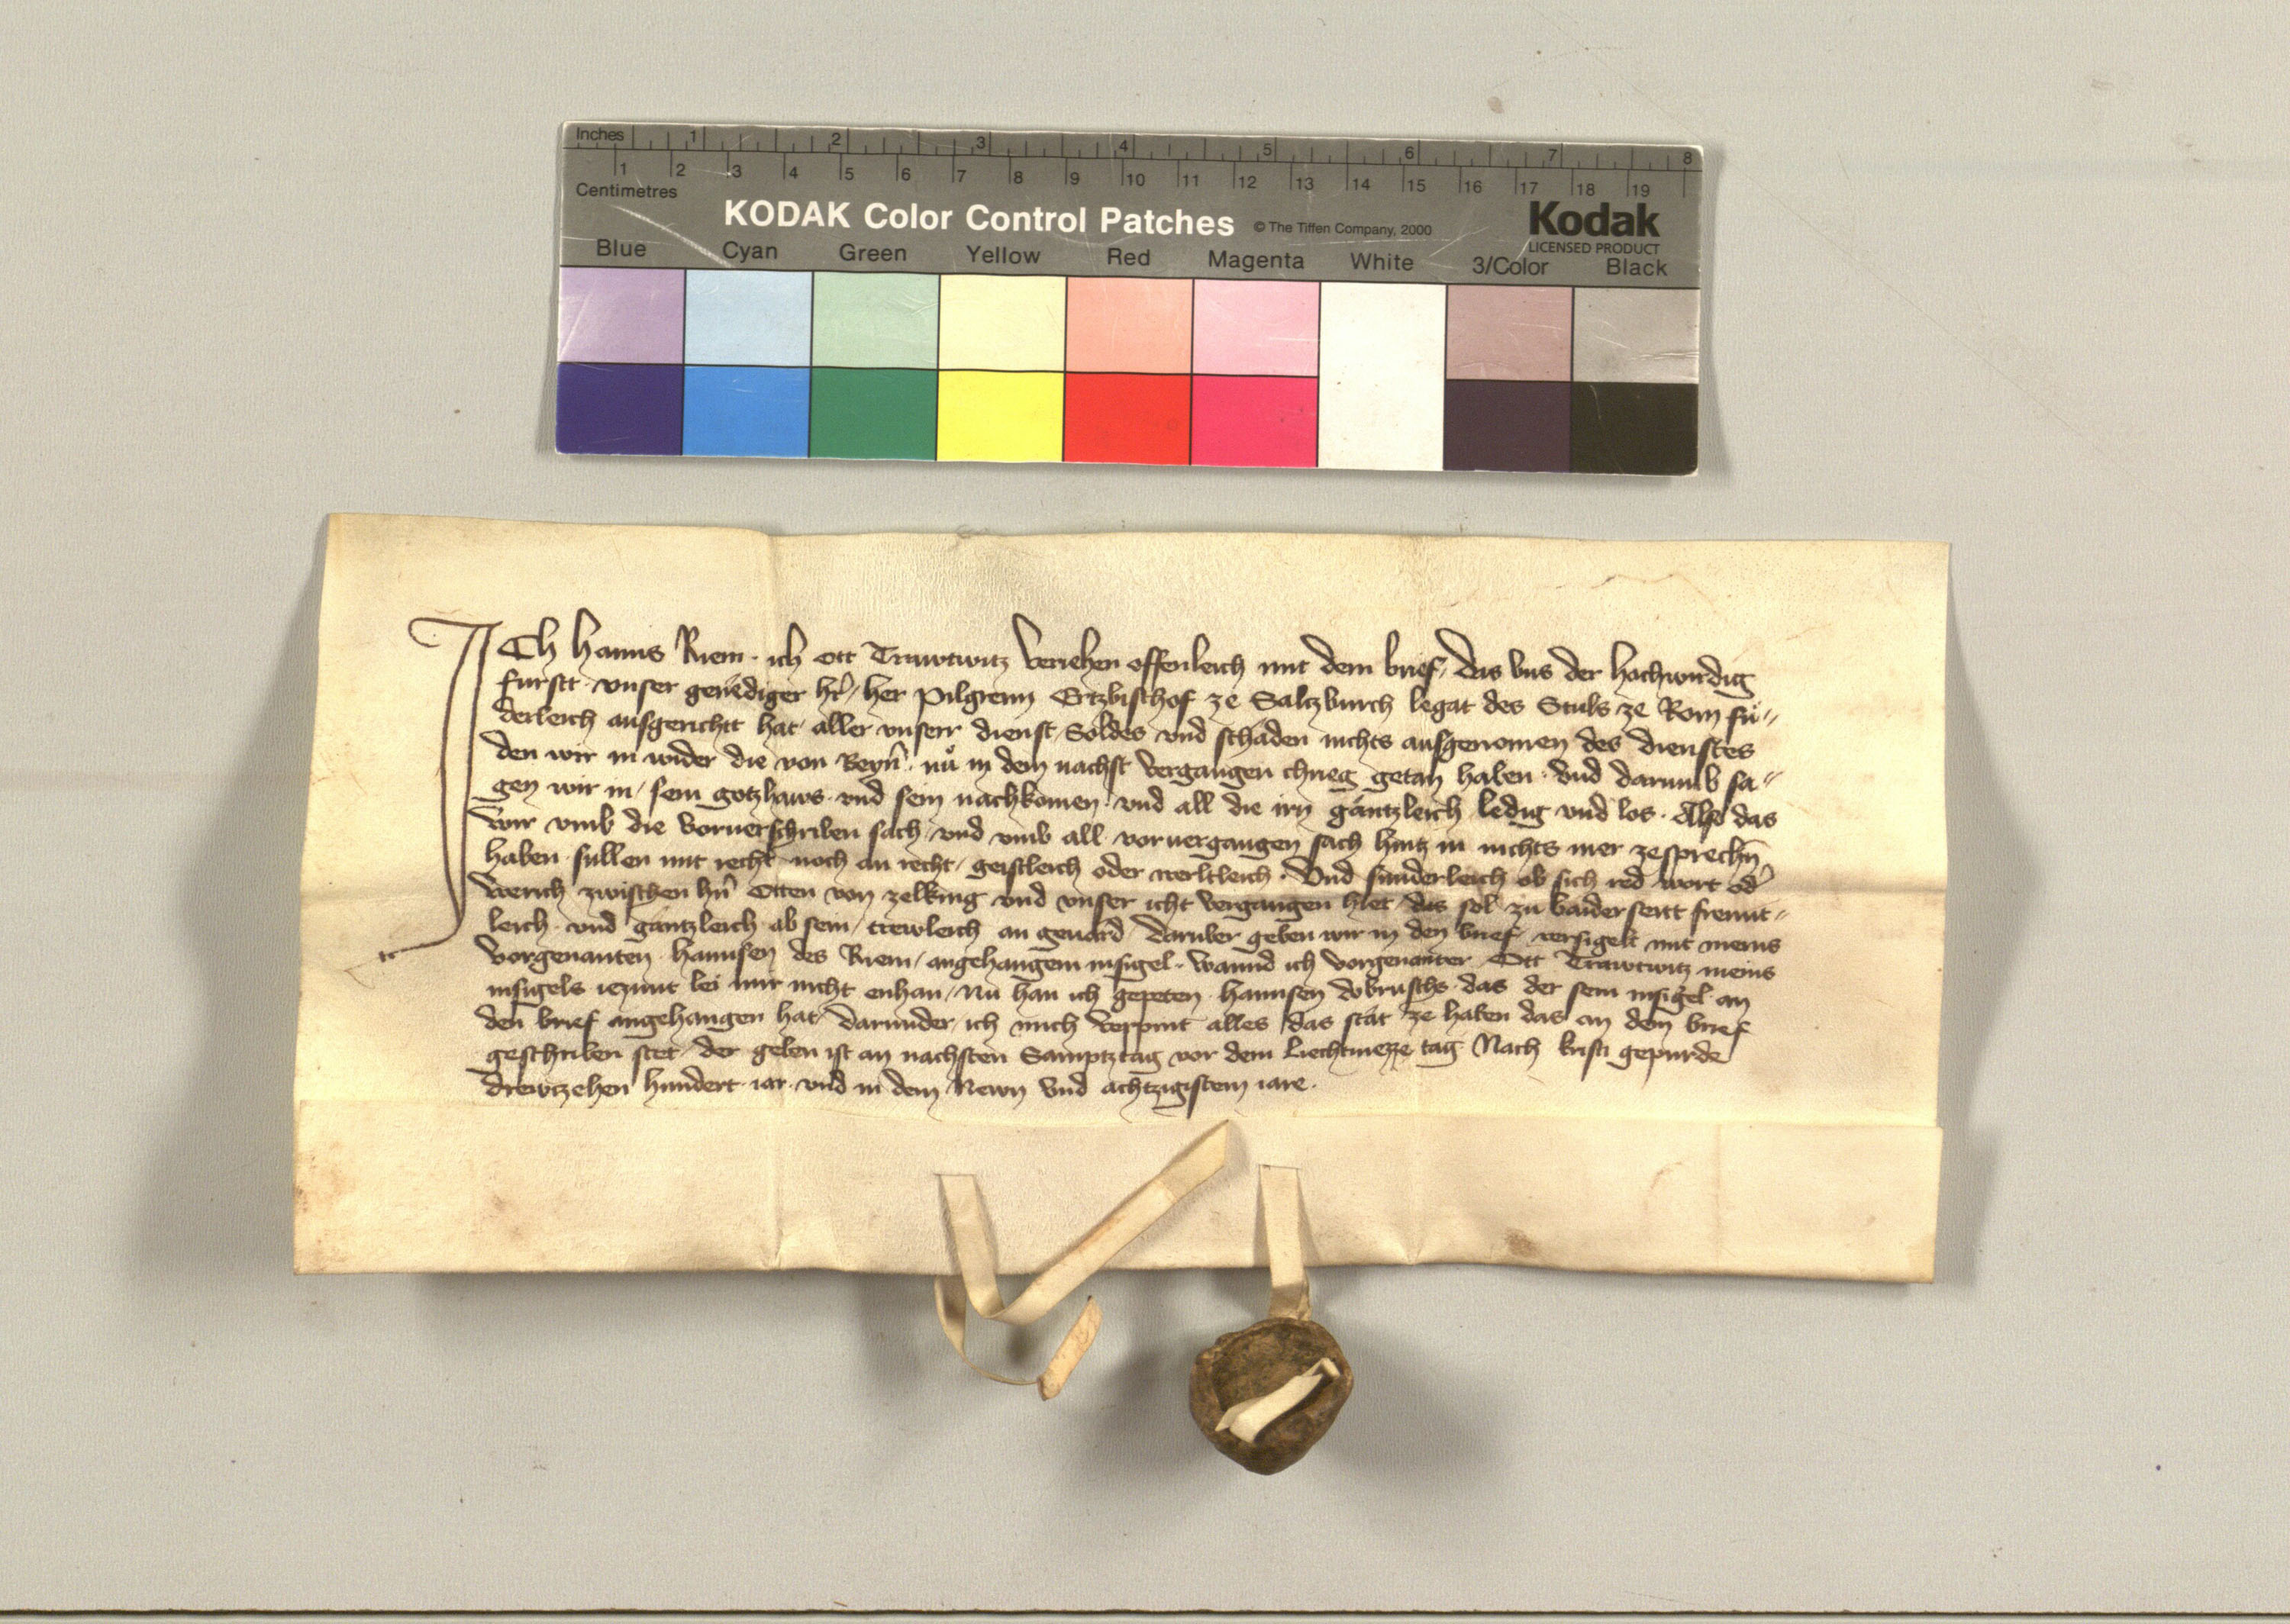 Inches 1 2 3 4 5 6 7 8
1 2 3 4 5 6 7 8 9 10 11 12 13 14 15 16 17 18 19
Centimetres
KODAK Color Control Patches © The Tiffen Company, 2000 Kodak
LICENSED PRODUCT
Blue Cyan Green Yellow Red Magenta White 3/Color Black
ICh Hanns Riem · ich Ott Trawtwitz veriehen offenleich mit dem brief / das vns der hochwirdig
furstt · vnser genediger hr̄ / her Pilgreim Ertzbischof ze Saltzburch legat des Stuls ze Rom fu°
derleich ausgericht hat aller vnserr dienst / Soldes vnd schaden nichts ausgenomen des dienstes
den wir in wider die von Beyrn̄ · nů in dem nachst vergangen chrieg getan haben · vnd darumb sa
gen wir in / sein gotzhaws · vnd sein nachkomen · vnd all die irn gäntzleich ledig vnd los · Also das
wir vmb die vorverschriben sach / vnd vmb all vorvergangen sach hintz in nichts mer zesprechn̄
haben sullen mit recht noch an recht / geistleich oder werltleich · Vnd sunderleich ob sich red wort od
werich zwischen hn̄ Otten von zelking vnd vnser icht vergangen hiet / das sol zu baider seitt freunt
leich · vnd gäntzleich ab sein / trewleich an geuärd / darüber geben wir in den brief / versigelt mit meins
vorgenanten · hannsen des Riem / angehangem insigel · wannd ich vorgenanter Ott Trawtwitz meins
insigels iezunt bei mir nicht enhan / Nu han ich gepeten · hannsen dobruschs · das der sein insigel · an
den brief angehangen hat / darunder / ich mich verpint alles das stät ze haben das an dem brief
geschriben stet / der geben ist an nachsten Samptztag vor dem Liechtmezze tag Nach kristi gepurde
drewtzehen hundert · iar · vnd in dem Newn vnd achtzigistem iare ·